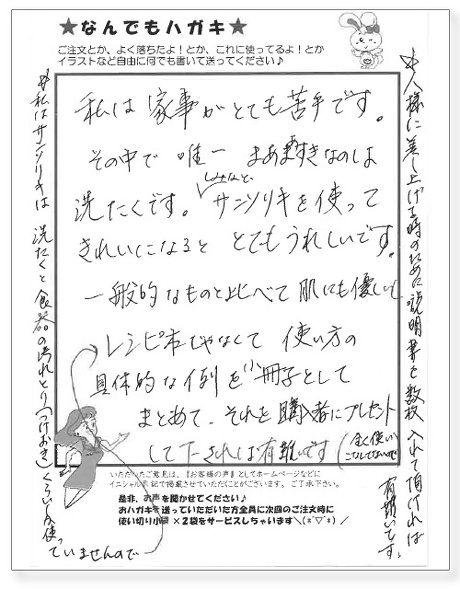 ★なんでもハガキ★
ご注文とか、よく落ちたよ！とか、これに使ってるよ！とか
イラストなど自由に何でも書いて送ってください♪
私は家事がとても苦手です。
その中で唯一まあまあすきなのは
洗たくです。サンソリキを使って
きれいになるととてもうれしいです。
一般的なものと比べて肌にも優しいし
レシピ本じゃなくて使い方の
具体的な例を小冊子として
まとめて、それを購入者にプレゼント
して下されば有難いです(全く使い
こなしてないので
※私はサンソリキは洗たくと食器の汚れとり(つけおき)くらいしか使っ
ていませんので
友人様に差し上げる時のために説明書を数枚入れて頂ければ
有難いです。
いただいたご意見は、『お客様の声』としてホームページなどに
イニシャル表記で掲載させていただくことがございます。ご了承下さい。
是非、お声を聞かせてください♪
おハガキを送っていただいた方全員に次回のご注文時に
使い切り小袋×2袋をサービスしちゃいます＼(*'▽'*)／